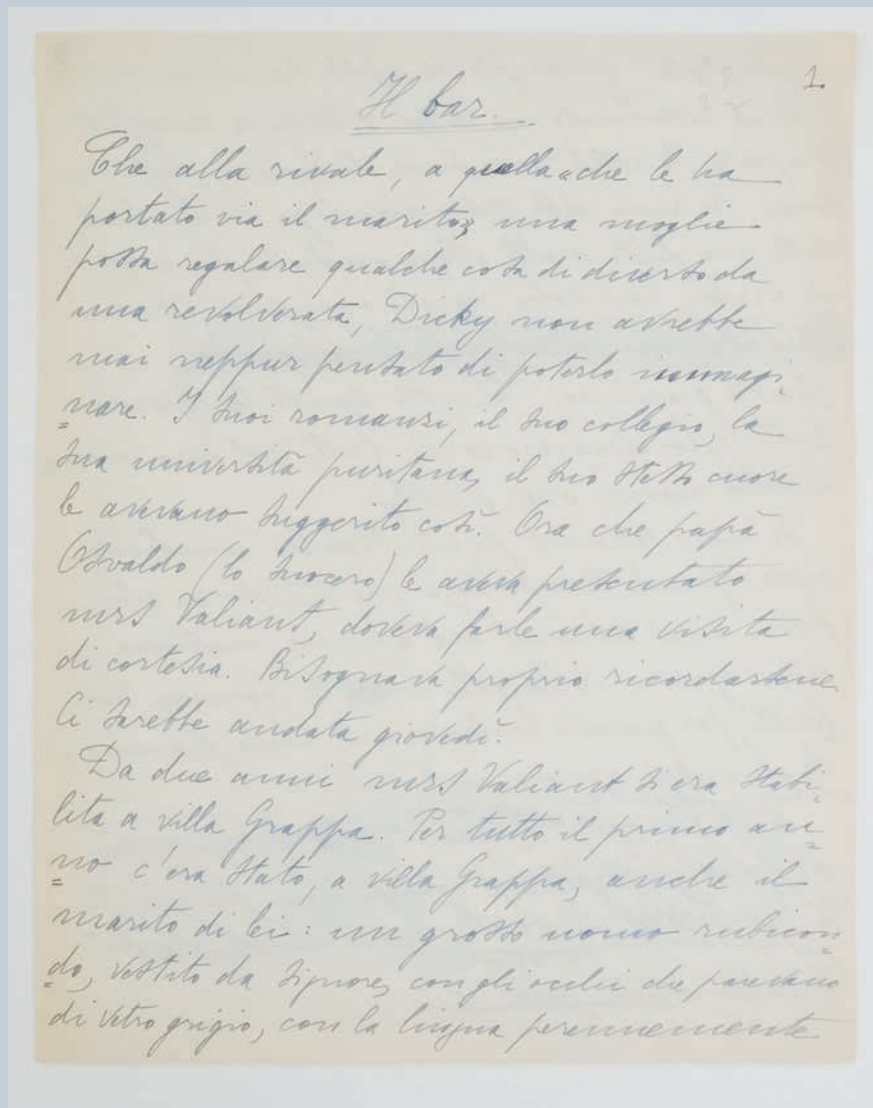 1.
Il bar.
Che alla rivale, a quella che le ha
portato via il marito, una moglie
possa regalare qualche cosa di diverso da
una revolverata, Dicky non avrebbe
mai neppur pensato di poterlo immagi-
nare. I suoi romanzi, il suo collegio, la
sua università puritana, il suo stesso cuore
le avevano suggerito così. Ora che papà
Osvaldo (lo suocero) le aveva presentato
mrs Valiant, doveva farle una visita
di cortesia. Bisognava proprio ricordarsene.
Ci sarebbe andata giovedì.
Da due anni mrs Valiant si era stabi-
lita a villa Grappa. Per tutto il primo an-
no c'era stato, a villa Grappa, anche il
marito di lei: un grosso uomo rubicon-
do, vestito da signore, con gli occhi che parevano
di vetro grigio, con la lingua perennemente